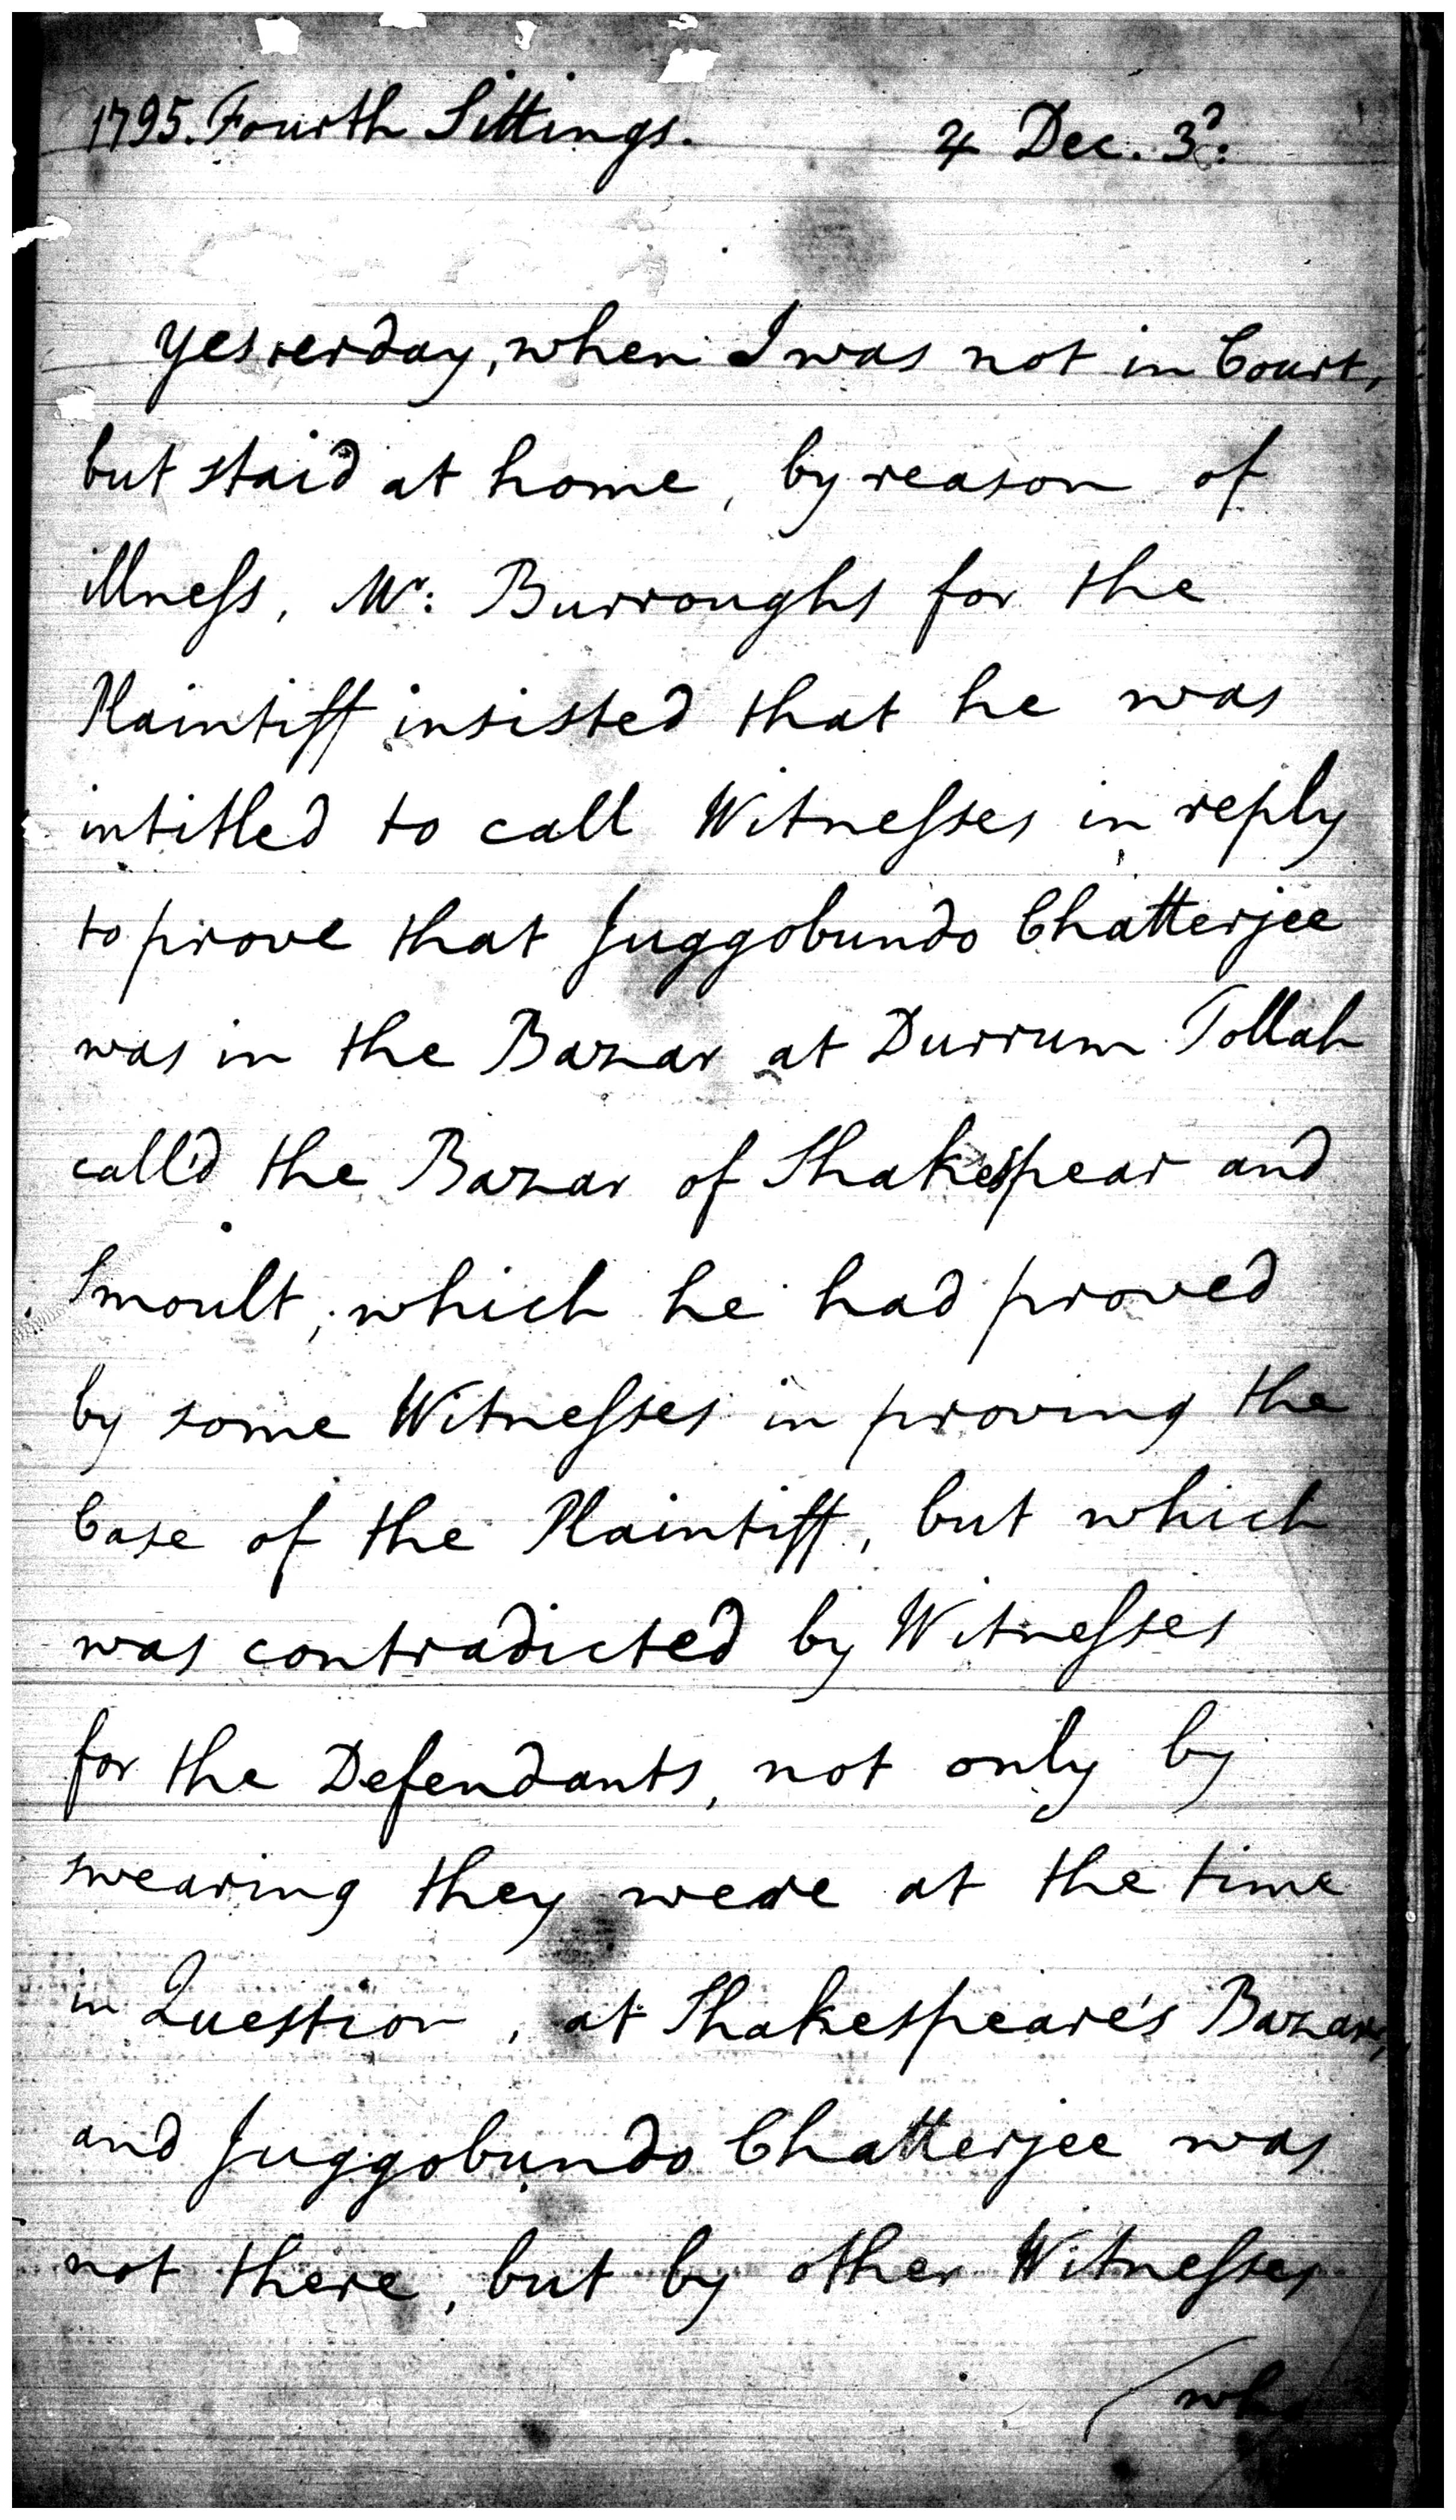 1795. Fourth Sittings. ♃ Dec. 3d:
Yesterday, when I was not in Court,
but staid at home, by reason of
illneſs, Mr: Burroughs for the
Plaintiff insisted that he was
intitled to call Witneſses in reply
to prove that Juggobundo Chatterjee
was in the Bazar at Durrum Tollah
call'd the Bazar of Shakespear and
Smoult, which he had proved
by some Witneſses in proving the
Case of the Plaintiff, but which
was contradicted by Witneſses
for the Defendants, not only by
swearing they were at the time
in Question, at Shakespeare's Bazar,
and Juggobundo Chatterjee was
not there, but by other Witneſses
who